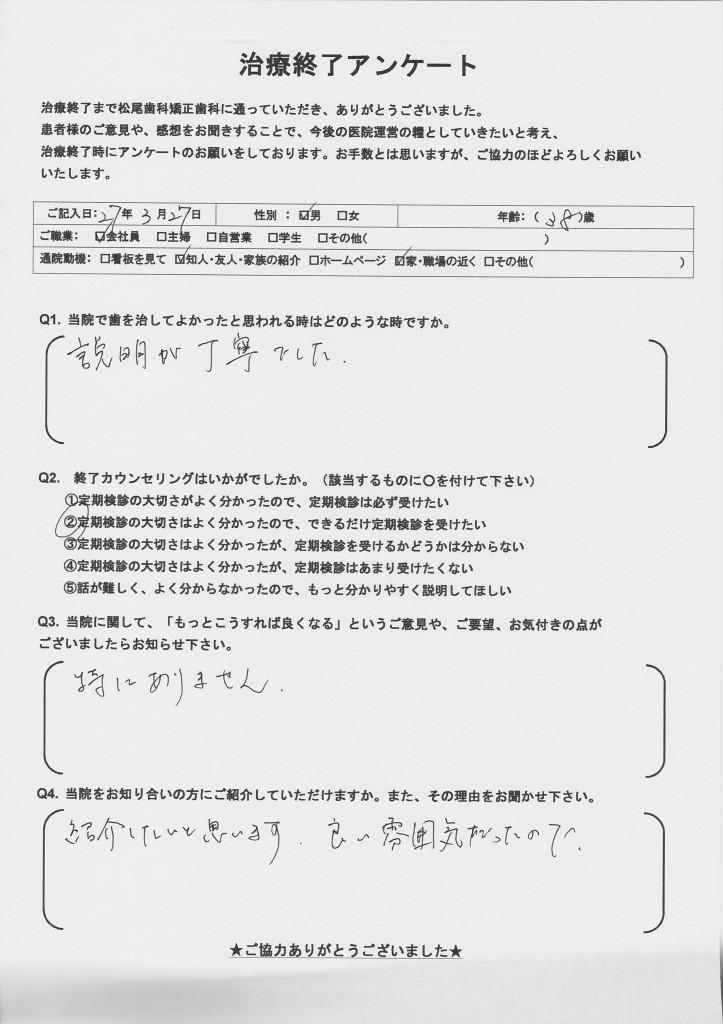 治療終了アンケート
治療終了まで松尾歯科矯正歯科に通っていただき、ありがとうございました。
患者様のご意見や、感想をお聞きすることで、今後の医院運営の糧としていきたいと考え、
治療終了時にアンケートのお願いをしております。お手数とは思いますが、ご協力のほどよろしくお願い
いたします。
ご記入日：27年 3月27日 性別 ： ☑男 □女 年齢：（ 38 ）歳
ご職業： ☑会社員 □主婦 □自営業 □学生 □その他( )
通院動機： □看板を見て ☑知人・友人・家族の紹介 □ホームページ ☑家・職場の近く □その他( )
Q1. 当院で歯を治してよかったと思われる時はどのような時ですか。
説明が丁寧でした.
Q2. 終了カウンセリングはいかがでしたか。（該当するものに〇を付けて下さい）
①定期検診の大切さがよく分かったので、定期検診は必ず受けたい
②定期検診の大切さはよく分かったので、できるだけ定期検診を受けたい
③定期検診の大切さはよく分かったが、定期検診を受けるかどうかは分からない
④定期検診の大切さはよく分かったが、定期検診はあまり受けたくない
⑤話が難しく、よく分からなかったので、もっと分かりやすく説明してほしい
Q3. 当院に関して、「もっとこうすれば良くなる」というご意見や、ご要望、お気付きの点が
ございましたらお知らせ下さい。
特にありません.
Q4. 当院をお知り合いの方にご紹介していただけますか。また、その理由をお聞かせ下さい。
紹介したいと思います. 良い雰囲気だったので.
★ご協力ありがとうございました★